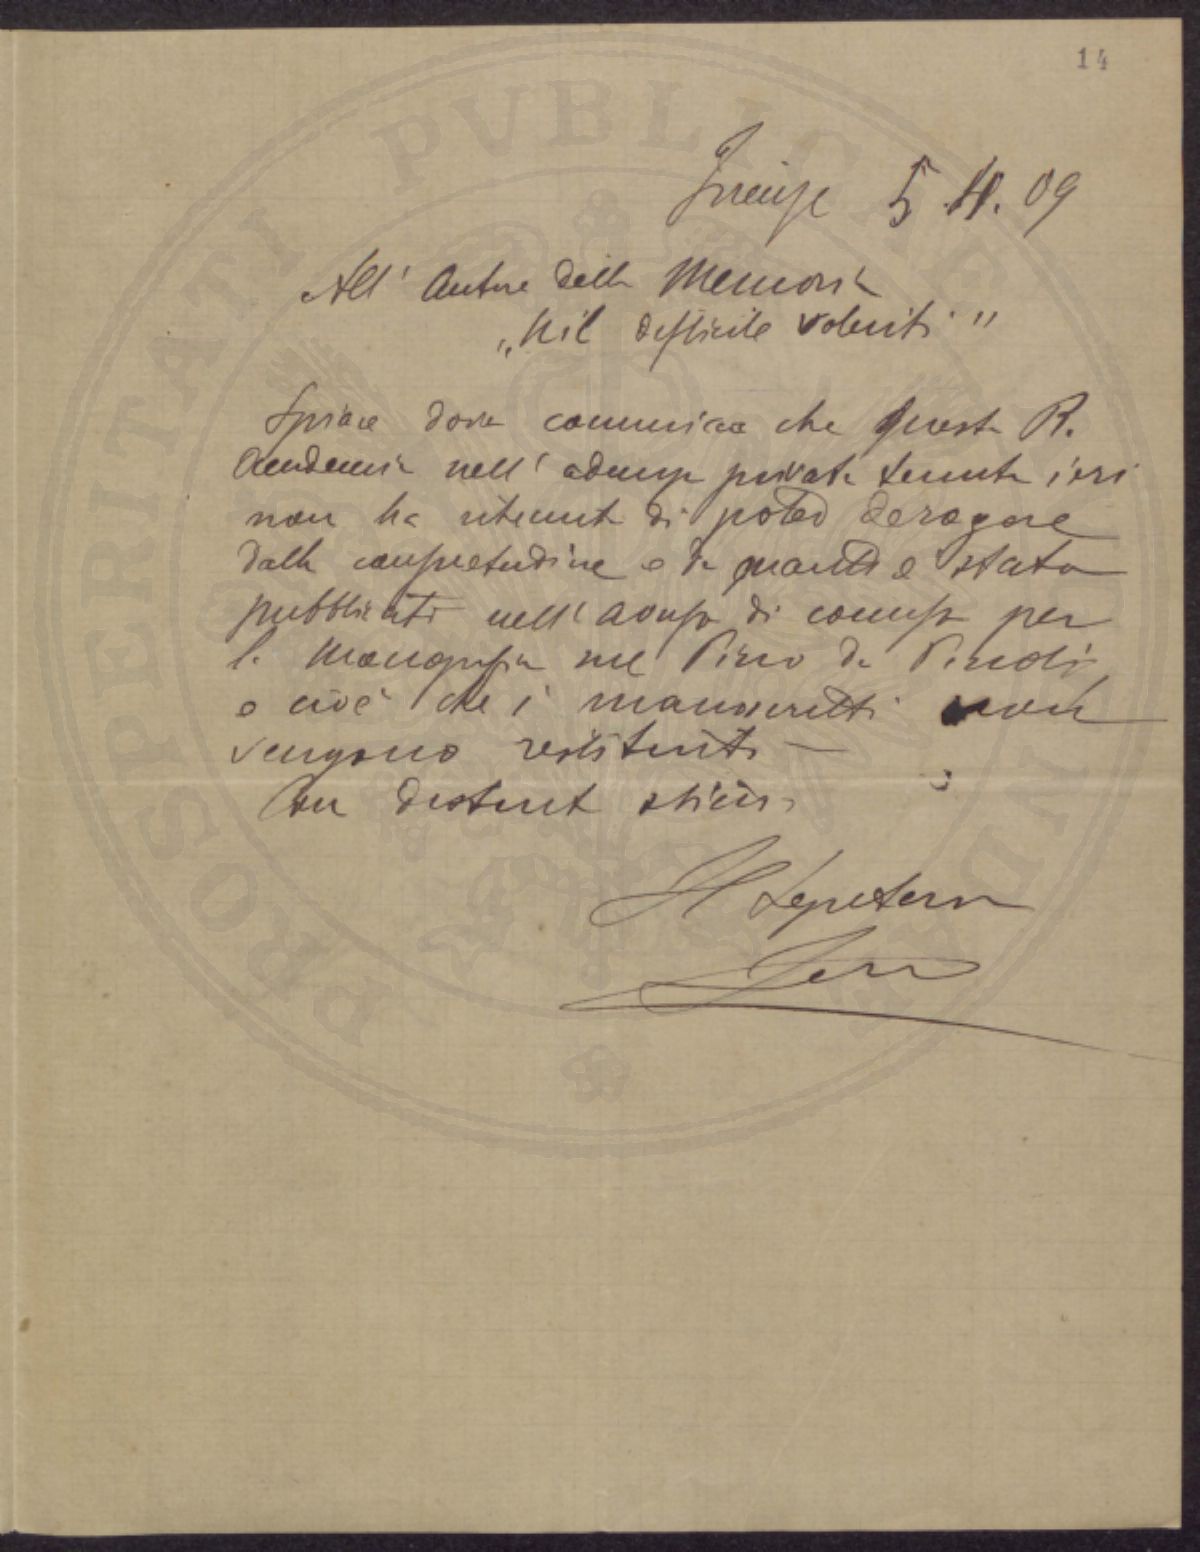 14
Firenze 5.II.09
All' Autore della Memoria
"Nil difficile volenti"
Spiace dover comunicare che questa R.
Accademia nell' adunza privata tenuta ieri
non ha ritenuto di poter derogare
dalla consuetudine e da quanto è stato
pubblicato nell' avviso di concorso per
la Monografia sul Pino da Pinoli
e cioè che i manoscritti non
vengono restituiti —
Con distinta stima
Il Segretario
PROSPERITATI PVBLICAE